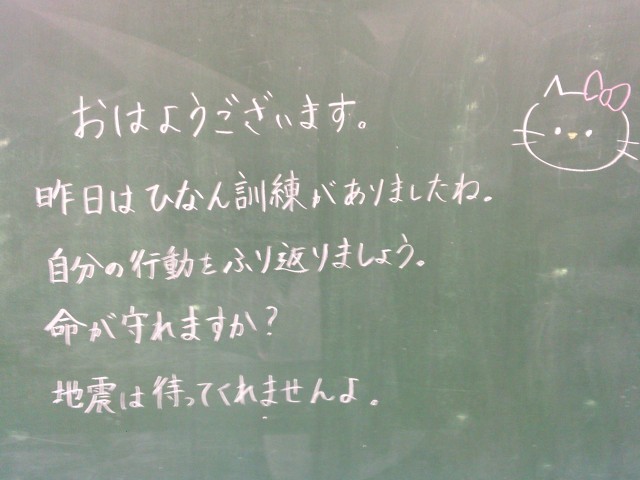 おはようございます。
昨日はひなん訓練がありましたね。
自分の行動をふり返りましょう。
命が守れますか?
地震は待ってくれませんよ。